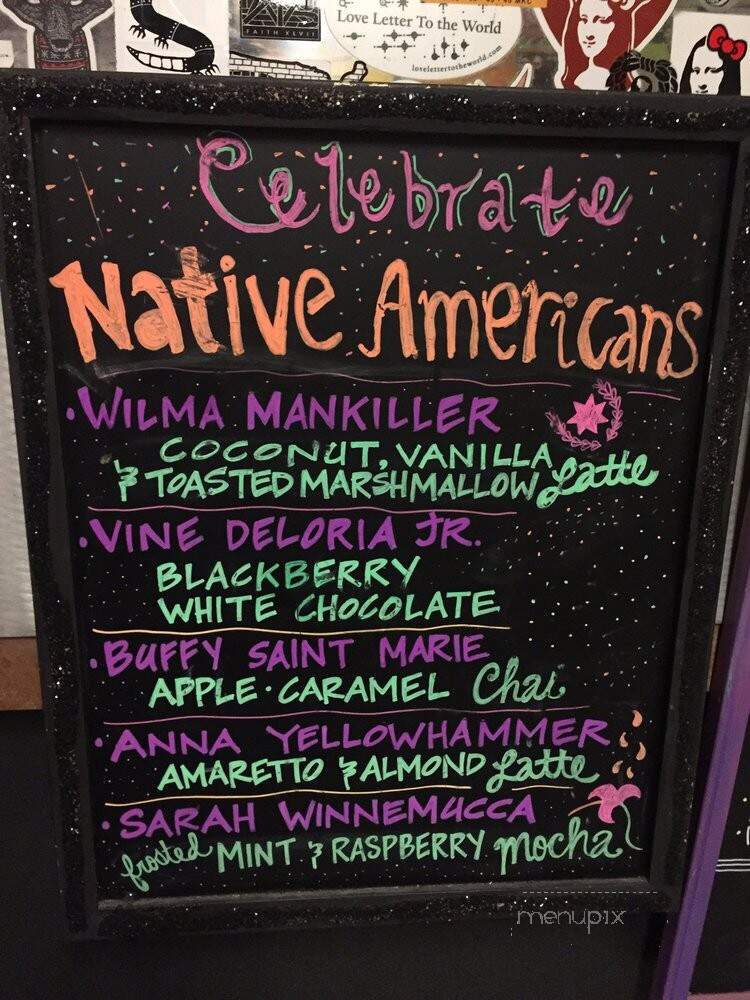 FAITH XLVII
Love Letter To the World
lovelettertotheworld.com
Celebrate
Native Americans
• WILMA MANKILLER
COCONUT, VANILLA
& TOASTED MARSHMALLOW Latte
• VINE DELORIA JR.
BLACKBERRY
WHITE CHOCOLATE
• BUFFY SAINT MARIE
APPLE • CARAMEL Chai
• ANNA YELLOWHAMMER
AMARETTO & ALMOND Latte
• SARAH WINNEMUCCA
frosted MINT & RASPBERRY mocha
menupix